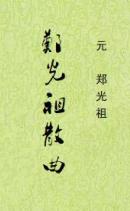 元 郑光祖
鄭光祖散曲